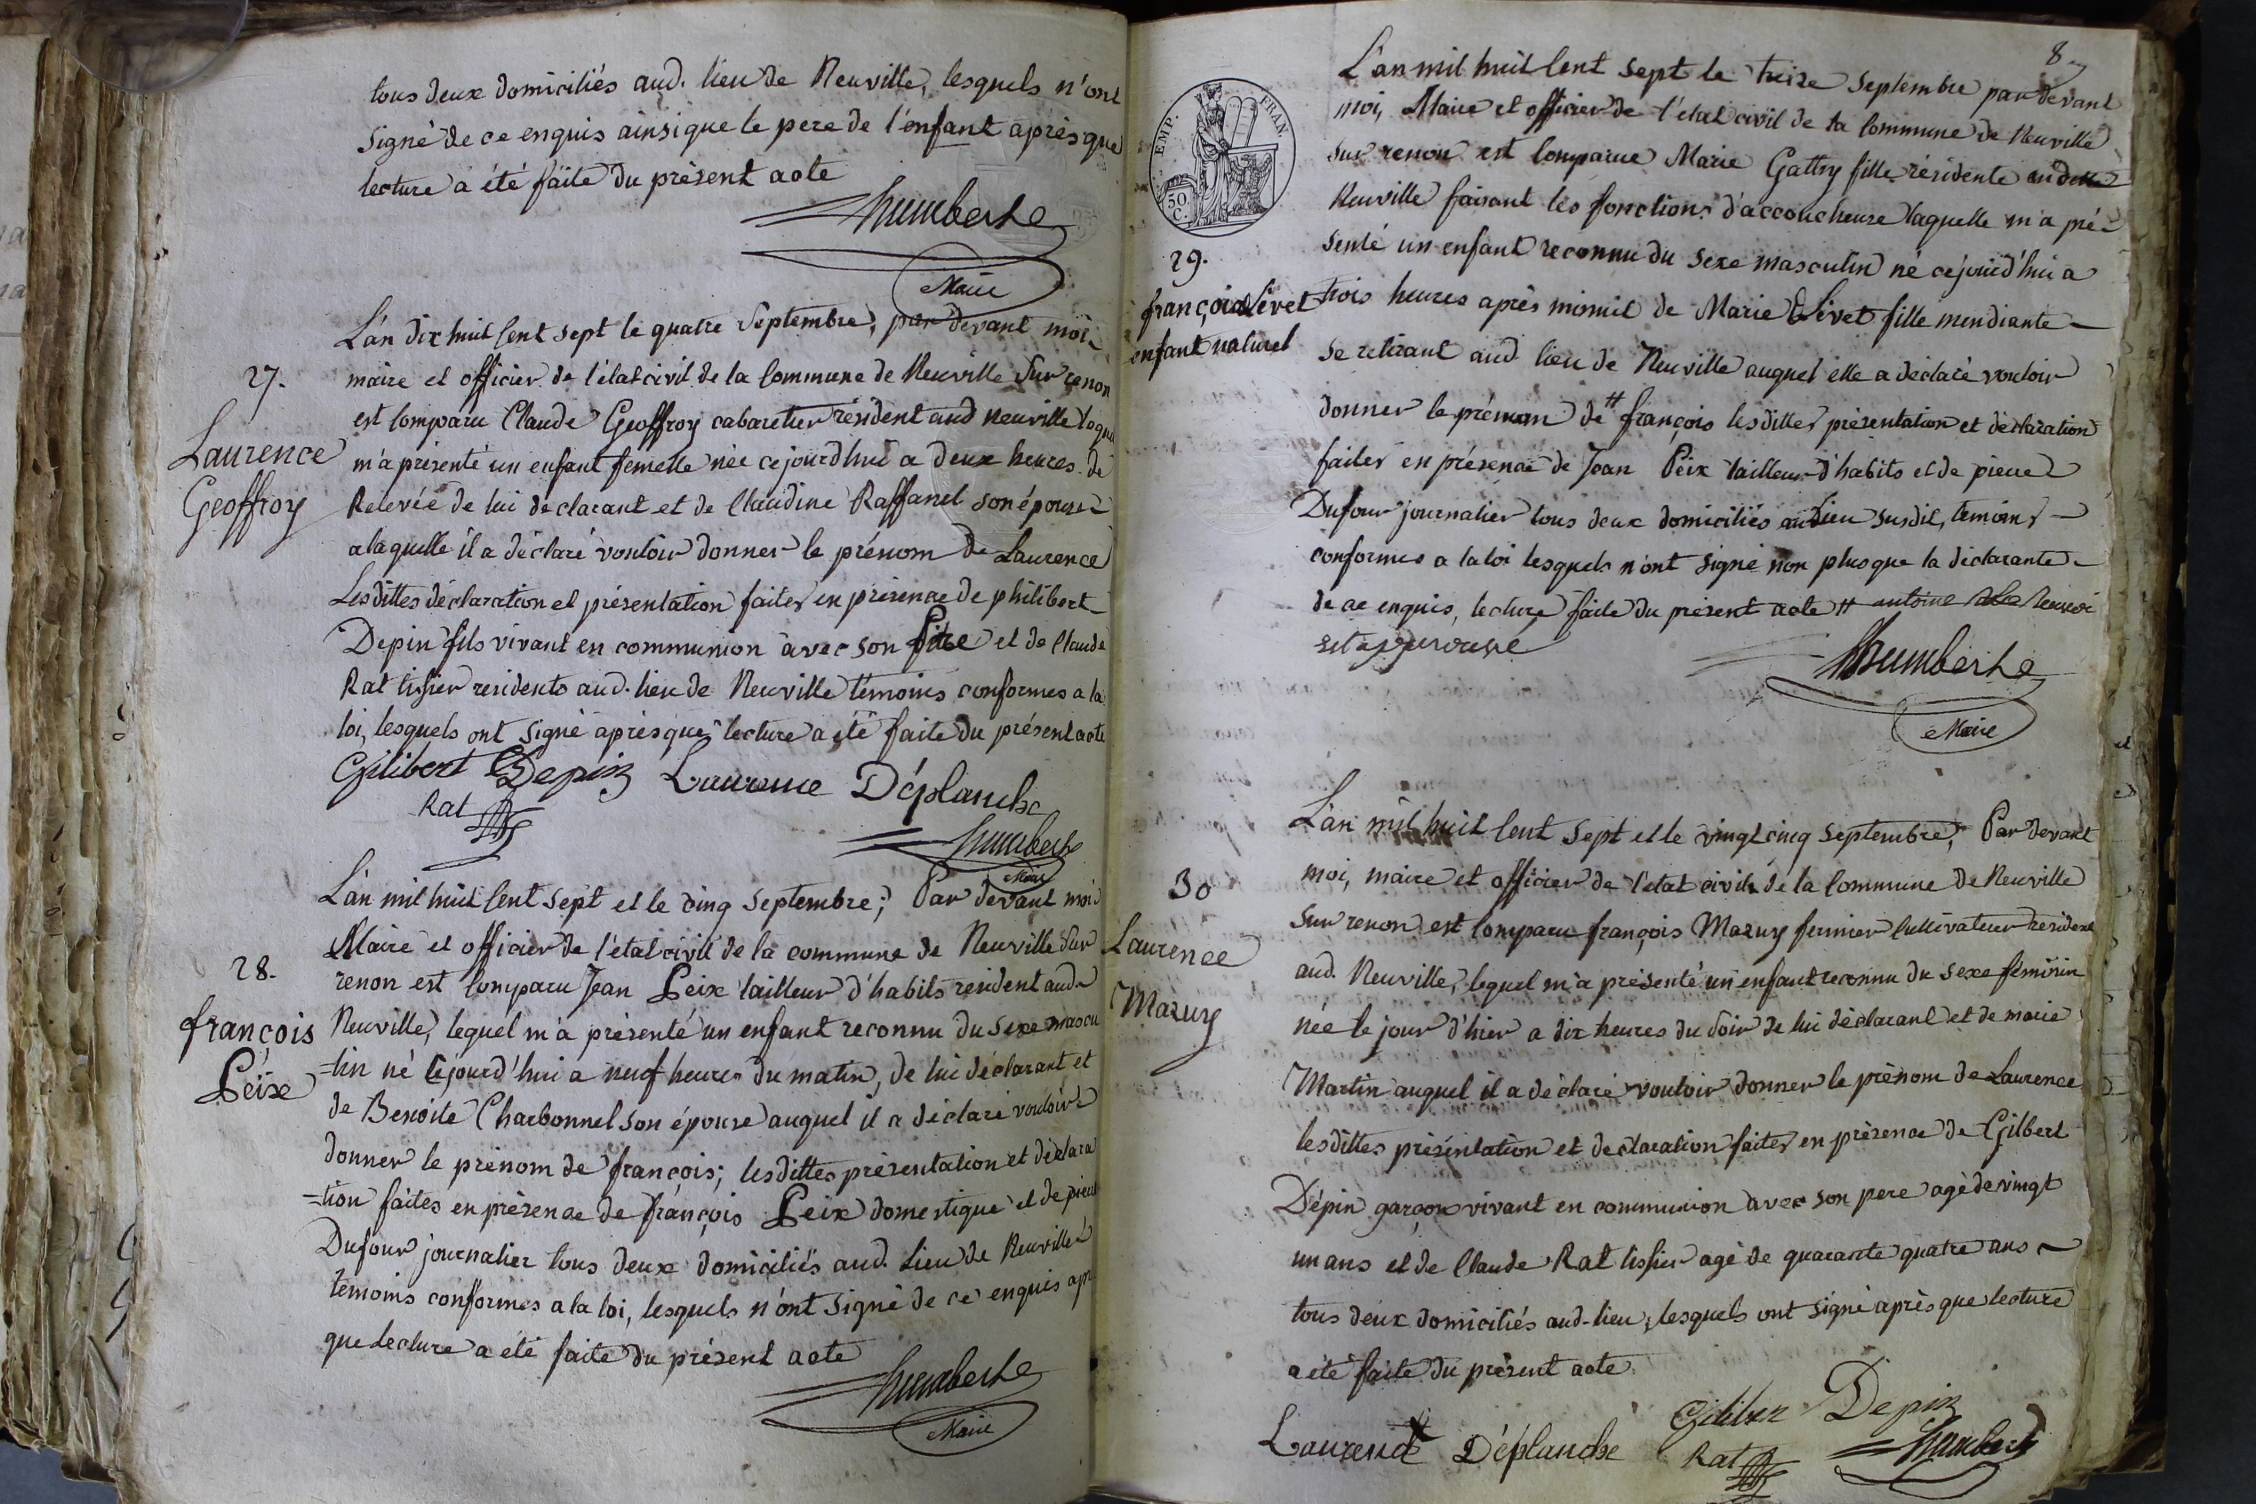 tous deux domiciliés aud. lieu de Neuville, lesquels n'ont
signé de ce enquis ainsi que le pere de l'enfant après que
lecture a été faite du présent acte
Humberte
Maire
L'an dix huit Cent sept le quatre Septembre, par devant moi
maire et officier de l'état civil de la Commune de Neuville Sur renon
27.
est Comparu Claude Geoffroy cabaretier résident aud neuville
Laurence
Geoffroy
m'a présenté un enfant femelle née cejourd'hui a deux heures de
Relevée de lui déclarant et de Claudine Raffanel son épouse
a laquelle il a déclaré vouloir donner le prénom de Laurence
Lesdittes déclaration et présentation faites en présence de philibert
Depin fils vivant en communion avec son père et de Claude
Rat tissier residents aud. lieu de Neuville témoins conformes a la
loi, lesquels ont signé après que lecture a été faite du présent acte
Gilibert Depin Laurence Déplanche
Rat
Humberte
Maire
L'an mil huit Cent sept et le cinq Septembre; Par devant moi
Maire et officier de l'etat civil de la commune de Neuville Sur
28.
renon est Comparu Jean Peix tailleur d'habits résident aud
françois
Peix
Neuville, lequel m'a présenté un enfant reconnu du sexe mascu
-lin né Cejourd'hui a neuf heures du matin, de lui déclarant et
de Benoite Charbonnel son épouse auquel il a déclaré vouloir
donner le prénom de françois; lesdittes présentation et déclara
-tion faites en présence de françois Peix domestique et de pierre
Dufour journalier tous deux domiciliés aud. Lieu de Neuville
témoins conformes a la loi, lesquels n'ont signé de ce enquis apr
que lecture a été faite du présent acte
Humberte
Maire
8
EMP. FRAN
50 C.
L'an mil huit Cent sept le treize Septembre par devant
moi, Maire et officier de l'état civil de la Commune de Neuville
sur renon est Comparue Marie Gattry fille résidente audit
Neuville faisant les fonctions d'accoucheuse laquelle m'a pré-
senté un enfant reconnu du sexe masculin né cejourd'hui a
29.
françois Livet
enfant naturel
trois heures après minuit de Marie Livet fille mendiante
se retirant aud. lieu de Neuville auquel elle a déclaré vouloir
donner le prénom de # françois lesdittes présentation et déclaration
faites en présence de Jean Peix tailleur d'habits et de pierre
Dufour journalier tous deux domiciliés au Lieu susdit, temoins
conformes a la loi lesquels n'ont signé non plus que la déclarante
de ce enquis, lecture faite du présent acte # antoine renvoi
est approuvé
Humberte
Maire
L'an mil huit Cent sept et le vingt cinq septembre, Par devant
moi, maire et officier de l'etat civil de la Commune de Neuville
30
Laurence
Mazuy
sur renon est Comparu françois Mazuy fermier Cultivateur résident
aud. Neuville, lequel m'a présenté un enfant reconnu du sexe féminin
née le jour d'hier a dix heures du Soir de lui déclarant et de marie
Martin auquel il a déclaré vouloir donner le prénom de Laurence
lesdittes présentation et declaration faites en présence de Gilbert
Dépin garçon vivant en communion avec son pere agé de vingt
un ans et de Claude Rat tissier agé de quarante quatre ans
tous deux domiciliés aud. lieu, lesquels ont signé après que lecture
a été faite du présent acte
Depin
Laurence Déplanche Rat Humberte